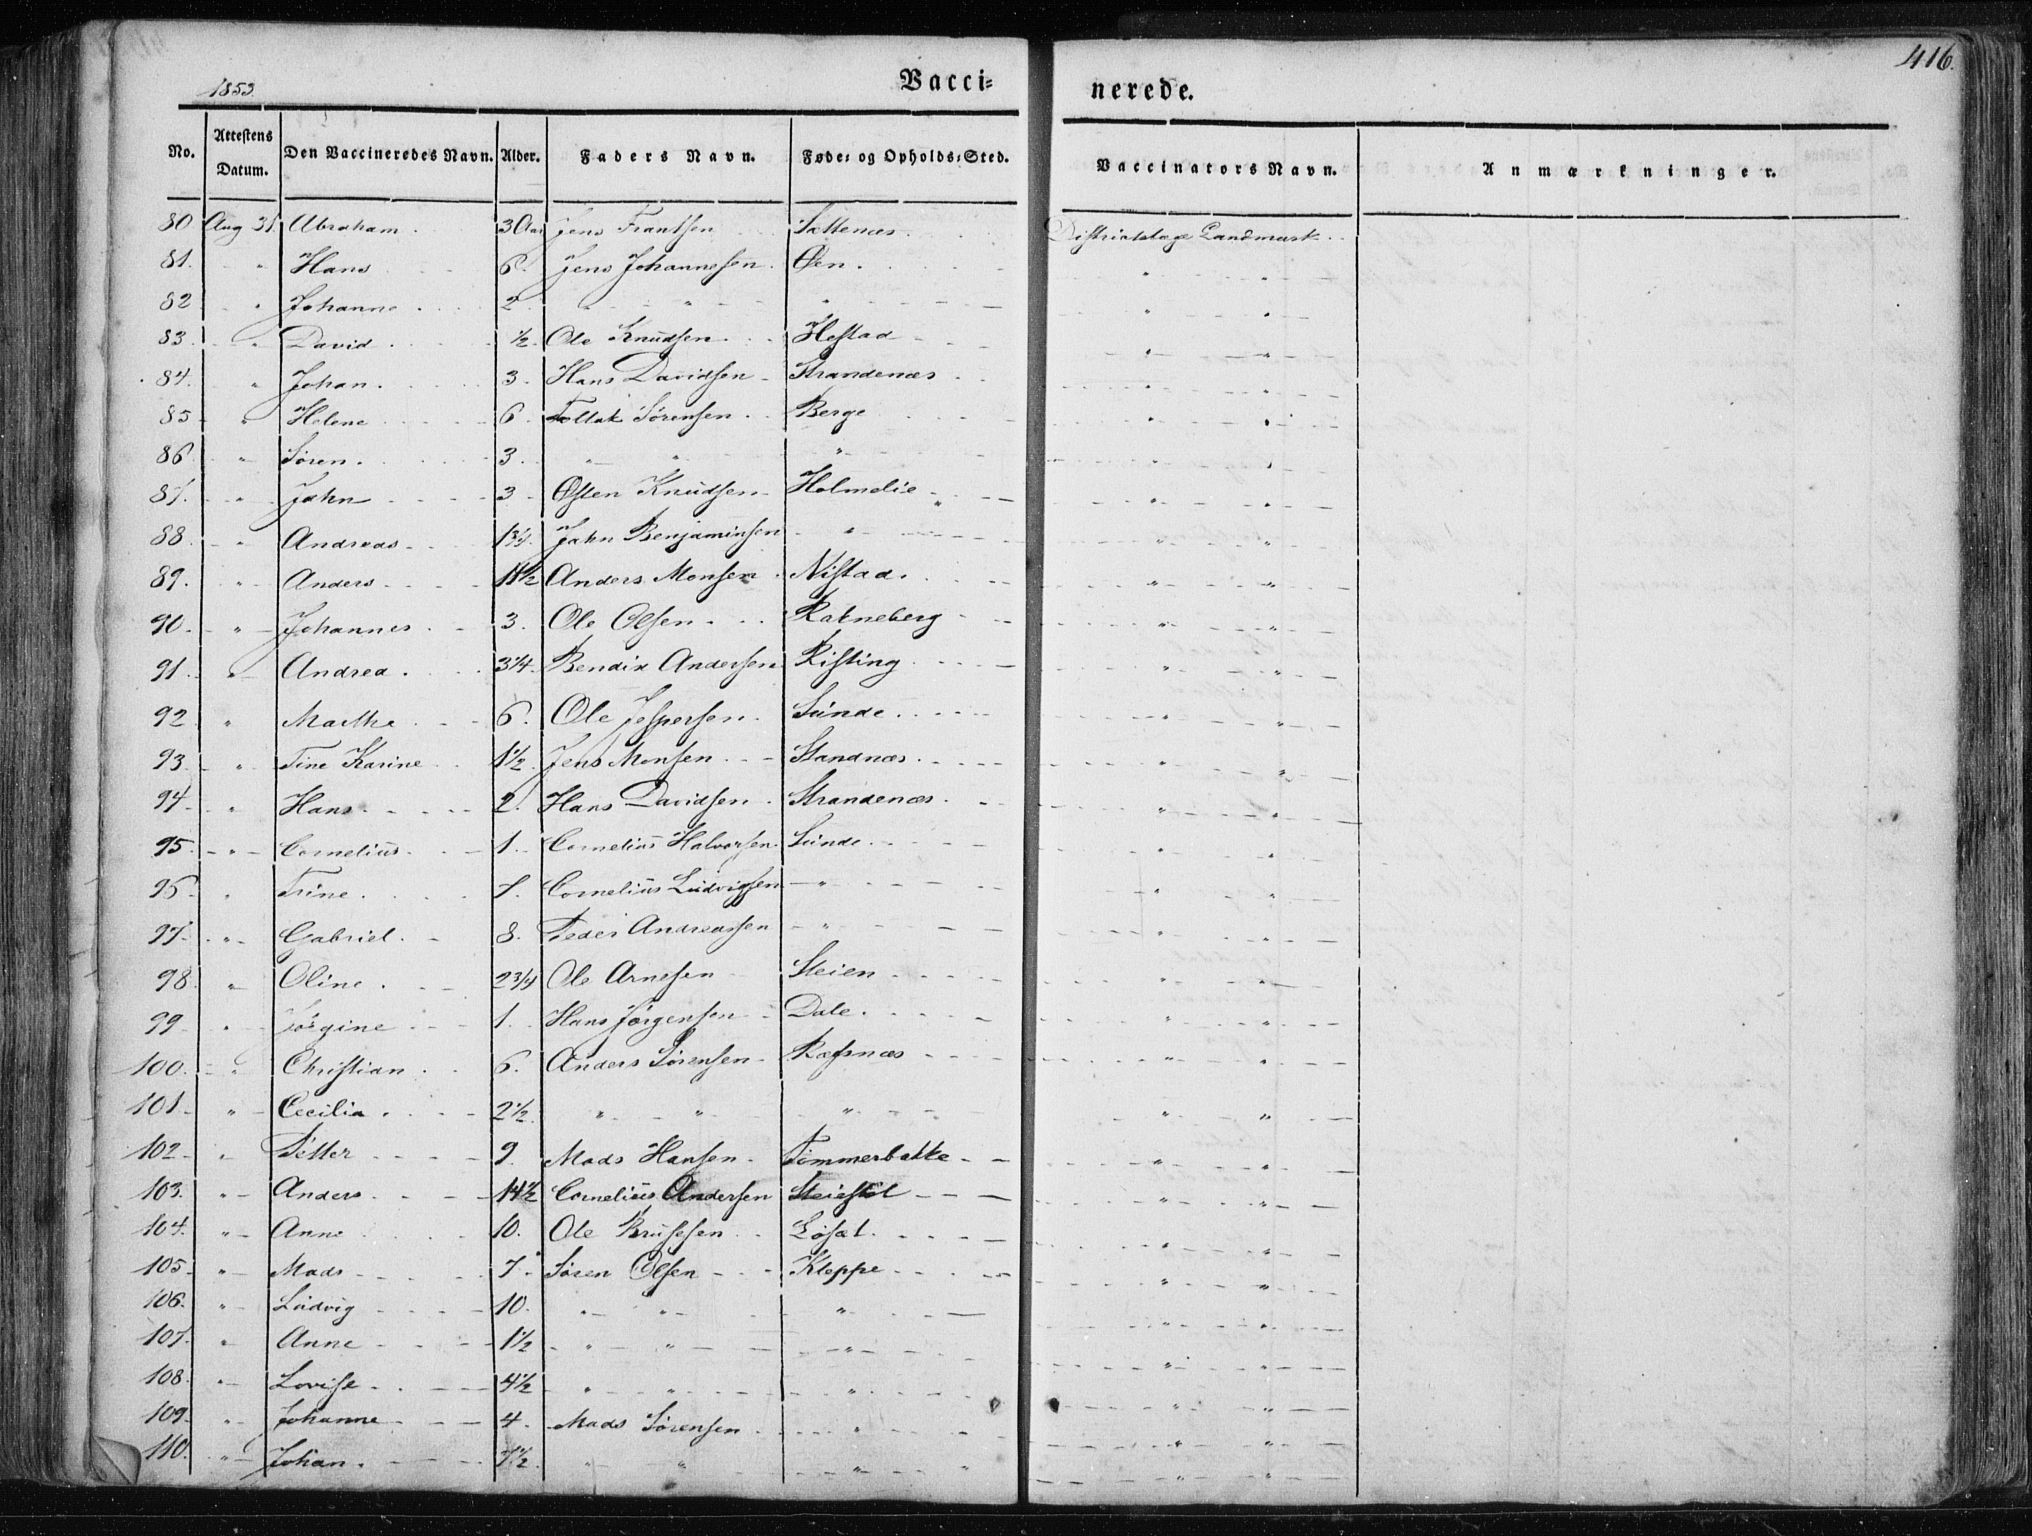 416.
1853.
Vacci=
nerede.
No. Attestens Datum. Den Vaccineredes Navn. Alder. Faders Navn. Føde= og Opholds=Sted. Vaccinators Navn. Anmærkninger.
80 Aug 31. Abraham. 3 Aar Jens Frantsen Sættenæs. Districtslæge Landmark.
81. " Hans 6. Jens Johannesen. Øen. " "
82 " Johanne 2 " " " " "
83. " David ½ Ole Knudsen Hestad " "
84. " Johan. 3. Hans Davidsen Strandenæs " "
85 " Helene 6 Tollak Sørensen Berge " "
86 " Søren. 3 " " " " "
87. " Jahn 3 Østen Knudsen Holmelie " "
88. " Andreas 1¾. Jahn Benjaminsen " " "
89. " Anders 11½ Anders Monsen Nistad. " "
90. " Johannes 3. Ole Olsen Rakneberg " "
91. " Andrea. 3¼. Bendix Andersen Risting " "
92 " Marthe 6. Ole Jespersen. Sunde " "
93 " Tine Karine 1½ Jens Monsen Standnæs. " "
94 " Hans 2. Hans Davidsen. Strandenæs. " "
95. " Cornelius. 1. Cornelius Halvorsen. Sunde. " "
96 " Trine. 1. Cornelius Ludvigsen " " "
97. " Gabriel. 8. Peder Andreassen " " "
98. " Oline. 2¾ Ole Arnesen Steien " "
99 " Jørgine 1. Hans Jørgensen Dale. " "
100. " Christian 6. Anders Sørensen Ræfsnæs " "
101. " Cecilia. 2½ " " " " "
102. " Petter 9. Mads Hansen Timmerbakke " "
103. " Anders 14½ Cornelius Andersen Steiestøl " "
104. " Anne 10. Ole Brusesen Løsæt. " "
105 " Mads 7. Søren Olsen Kleppe " "
106. " Ludvig 10. " " " " "
107. " Anne 1½ " " " " "
108. " Lovise 4½ " " " " "
109. " Johanne 4. Mads Sørensen " " "
110. " Johan. 7½ " " " " "